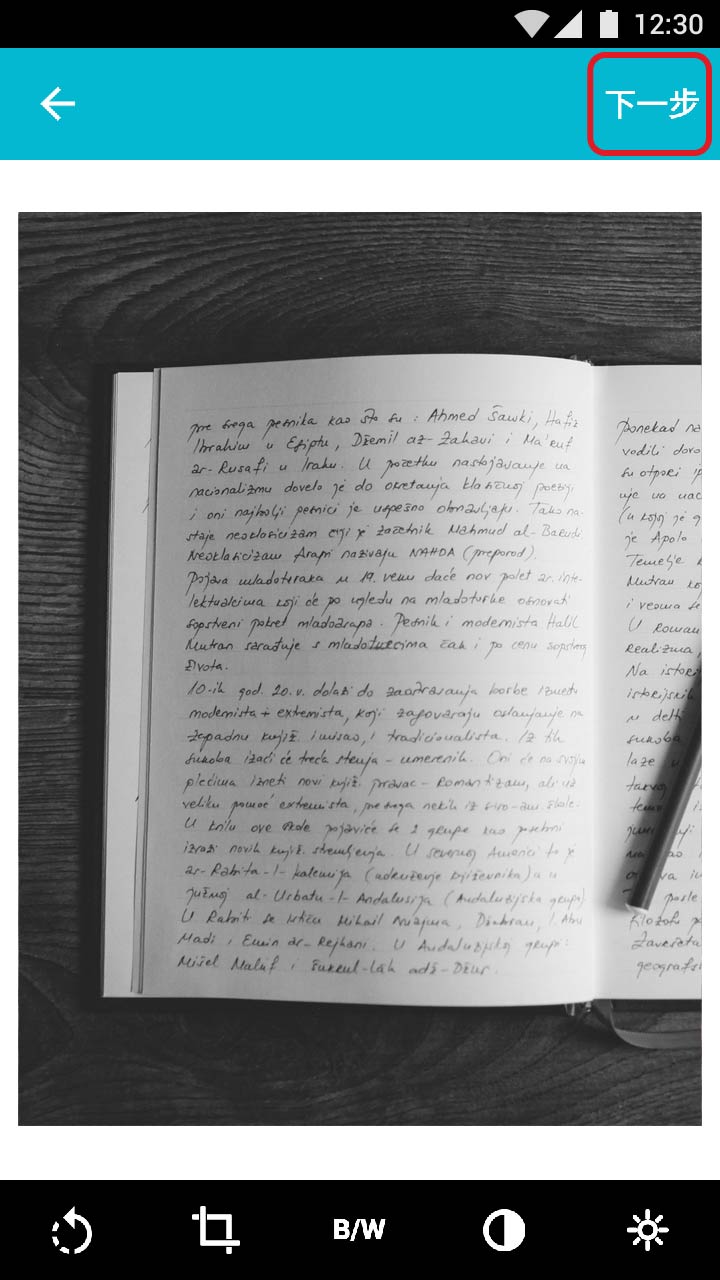 12:30
下一步
pre svega pesnika kao što su : Ahmed Šawki, Hafiz
Ibrahim u Egiptu, Džemil az-Zahavi i Ma'ruf
ar-Rusafi u Iraku. U početku nastojavanje na
nacionalizmu dovelo je do okretanja klasičnoj poeziji,
i oni najbolji pesnici je uspešno obnavljaju. Tako na-
staje neoklasicizam čiji je začetnik Mahmud al-Barudi
Neoklasicizam Arapi nazivaju NAHDA (preporod).
Pojava mladoturaka u 19. veku daće nov polet ar. inte-
lektualcima koji će po ugledu na mladoturke osnovati
sopstveni pokret mladoarapa. Pesnik i modernista Halil
Mutran sarađuje s mladoturcima čak i po cenu sopstvenog
života.
10-ih god. 20.v. dolazi do zaoštravanja borbe između
modernista + extremista, koji zagovaraju oslanjanje na
zapadnu knjiž. i misao, i tradicionalista. Iz tih
sukoba izaći će treća struja - umerenih. Oni će na svojim
plećima izneti novi knjiž. pravac - Romantizam, ali uz
veliku pomoć extremista, pre svega nekih iz siro-am. škole.
U krilu ove škole pojaviće se 2 grupe kao posebni
izrazi novih knjiž. stremljenja. U severnoj Americi to je
ar-Rabita-l-kalemija (udruženje književnika) a u
južnoj al-Usbatu-l-Andalusija (Andaluzijska grupa)
U Rabiti se ističu Mihail Nuajma, Džubran, I. Abu
Madi i Emin ar-Rejhani. U Andaluzijskoj grupi:
Mišel Maluf i Šukrul-lah adž-Džur.
Ponekad na
vodili
su otpori
je Apolo
Temelje
Mutran
i veoma
U Roman
Realizma,
Na istori
istorijskih
u delti
sukoba
laze u
posle
filozofi
geografsk
B/W